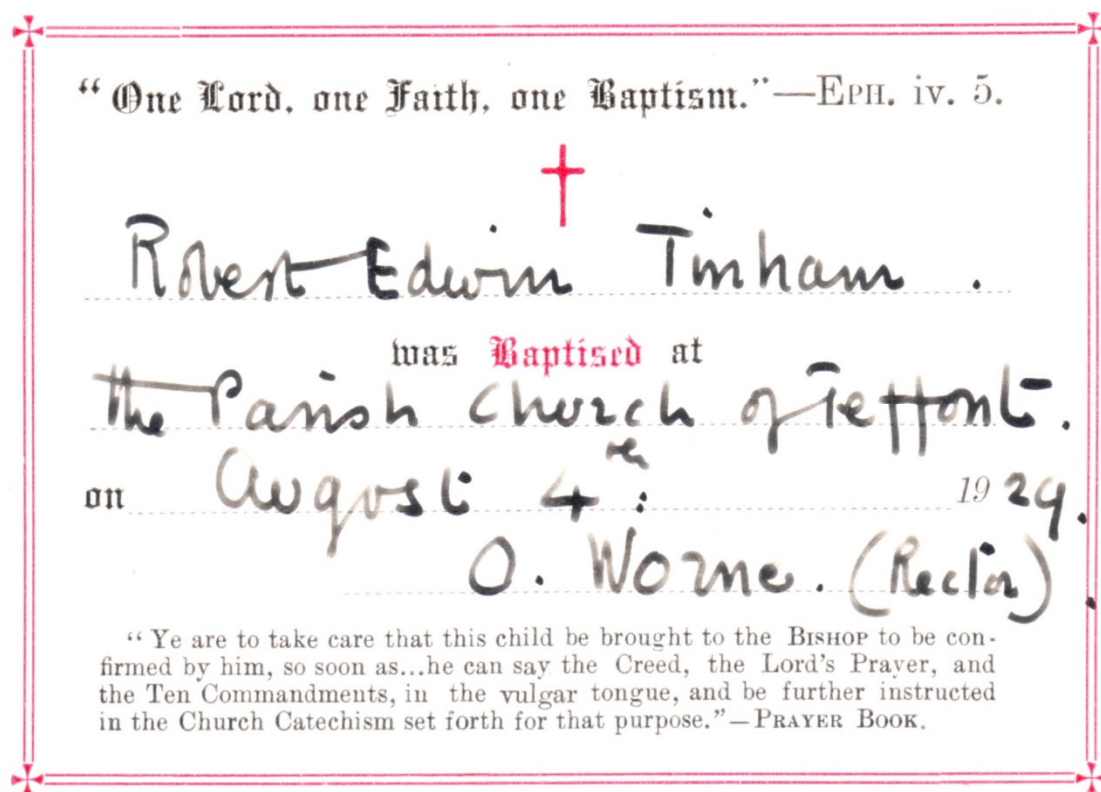 “One Lord, one Faith, one Baptism.”—EPH. iv. 5.
Robert Edwin Tinham .
was Baptised at
the Parish Church of Teffont.
on August 4th: 1929.
O. Worne. (Rector).
“Ye are to take care that this child be brought to the BISHOP to be con-
firmed by him, so soon as...he can say the Creed, the Lord's Prayer, and
the Ten Commandments, in the vulgar tongue, and be further instructed
in the Church Catechism set forth for that purpose.”—PRAYER BOOK.